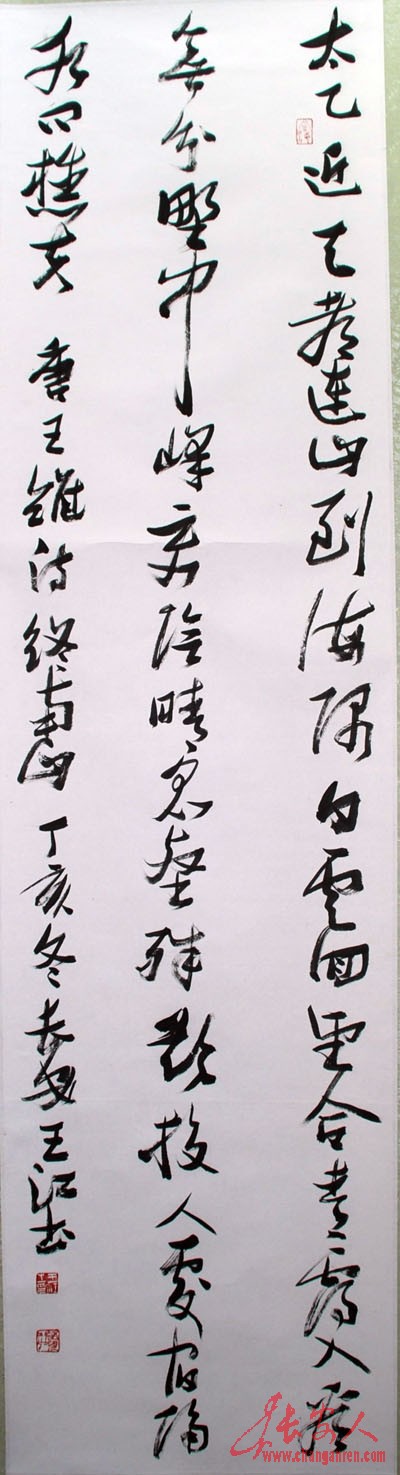 太乙近天都連山到海隅白雲迴望合青靄入看
無分野中峰变陰晴眾壑殊欲投人處宿隔
水问樵夫 唐王維诗終南山 丁亥冬長安王江书
长安人
www.changanren.com